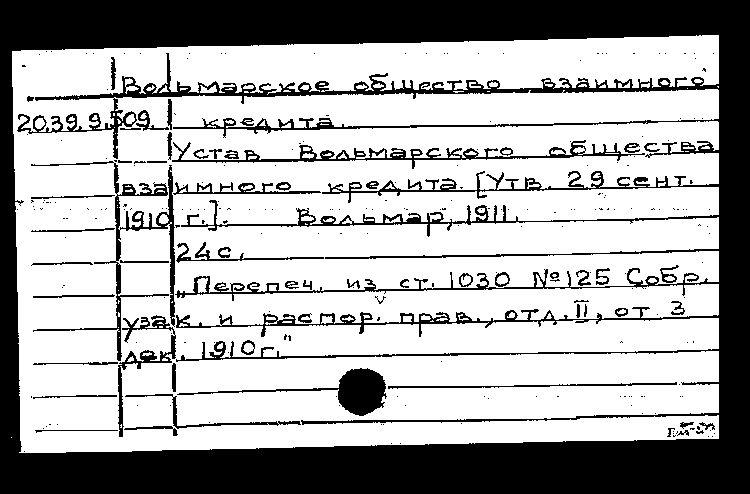 Вольмарское общество взаимного
20.39.9.509. кредита.
Устав Вольмарского общества
взаимного кредита. [Утв. 29 сент.
1910 г.]. Вольмар, 1911.
24 с.
„Перепеч. из ст. 1030 №125 Собр.
узак. и распор. прав., отд. II, от 3
дек. 1910 г."